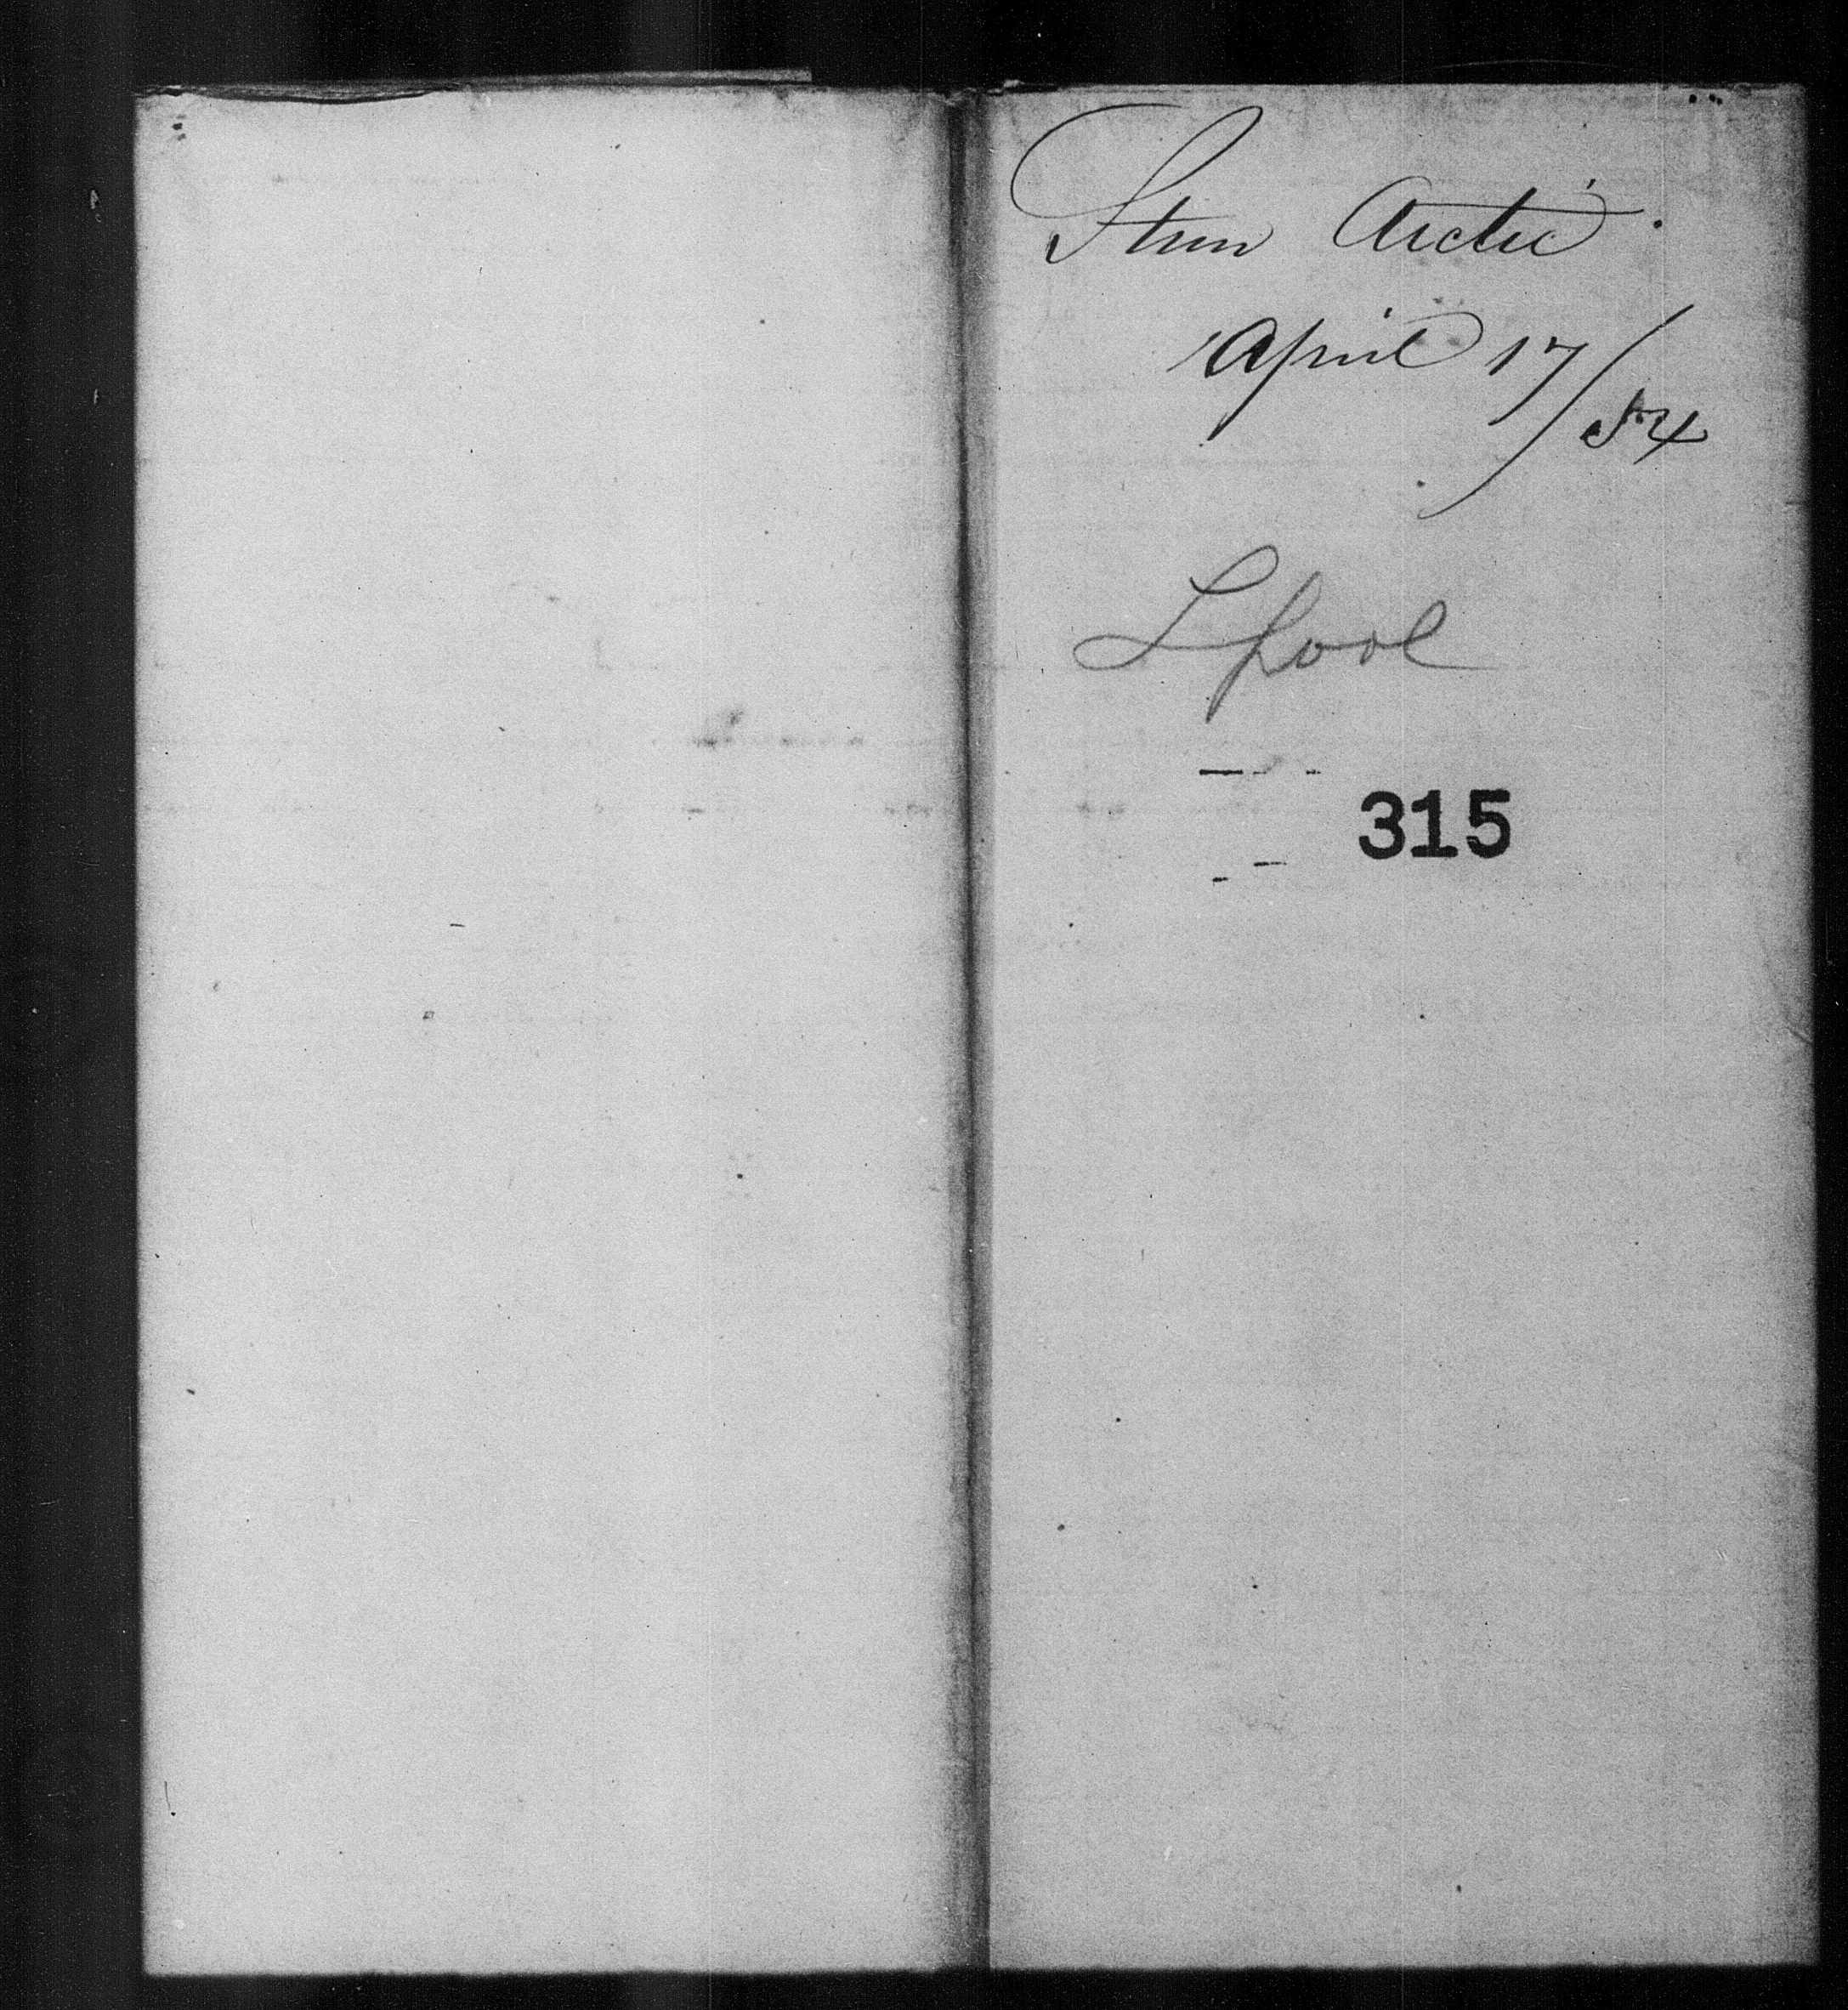 Stmr Arctic.
April 17/54
L pool
315